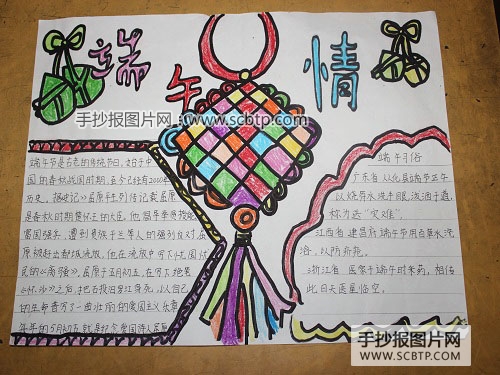 端午情
手抄报图片网
www.scbtp.com
端午节是古老的传统节日,始于中
国的春秋战国时期,至今已经有2000年
历史。据《史记》屈原
是春秋时期楚怀王的大臣,他倡导举贤授能,
富国强兵,遭到贵族子兰等人的强烈反对,屈
原被赶出都城,流放,他在流放中,写下了忧国忧
民的《离骚》,屈原于五月初五,在写下绝笔
《怀沙》之后,抱石投汨罗江身死,以自己
的生命谱写了一曲壮丽的爱国主义乐章
年年的5月初五就是纪念爱国诗人屈原
端午习俗
广东省 从化县端节正午
以烧符水洗手眼后,泼洒于道,
称为送“灾难”。
江西省 建昌府端午节用百草水洗
浴,以防疥疮。
浙江省 医师于端午时采药,相传
此日天医星临空。
手抄报图片网
WWW.SCBTP.COM